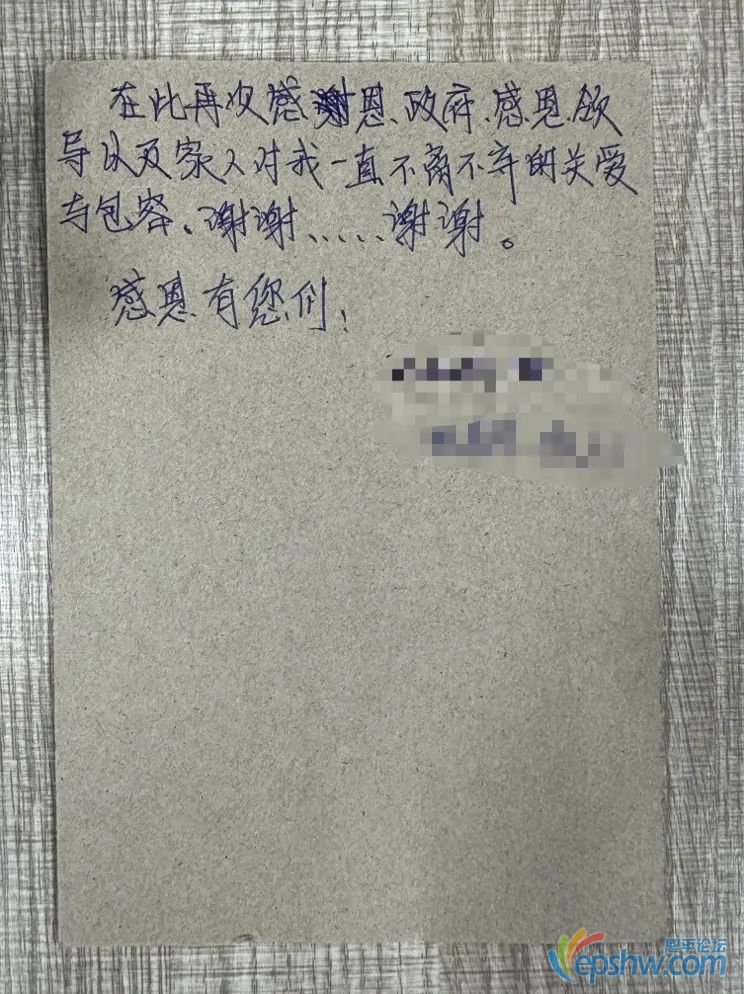 在此再次感恩、政府、感恩领
导以及家人对我一直不离不弃的关爱
与包容、谢谢、、、、、谢谢。
感恩有您们！
恩平论坛
epshw.com